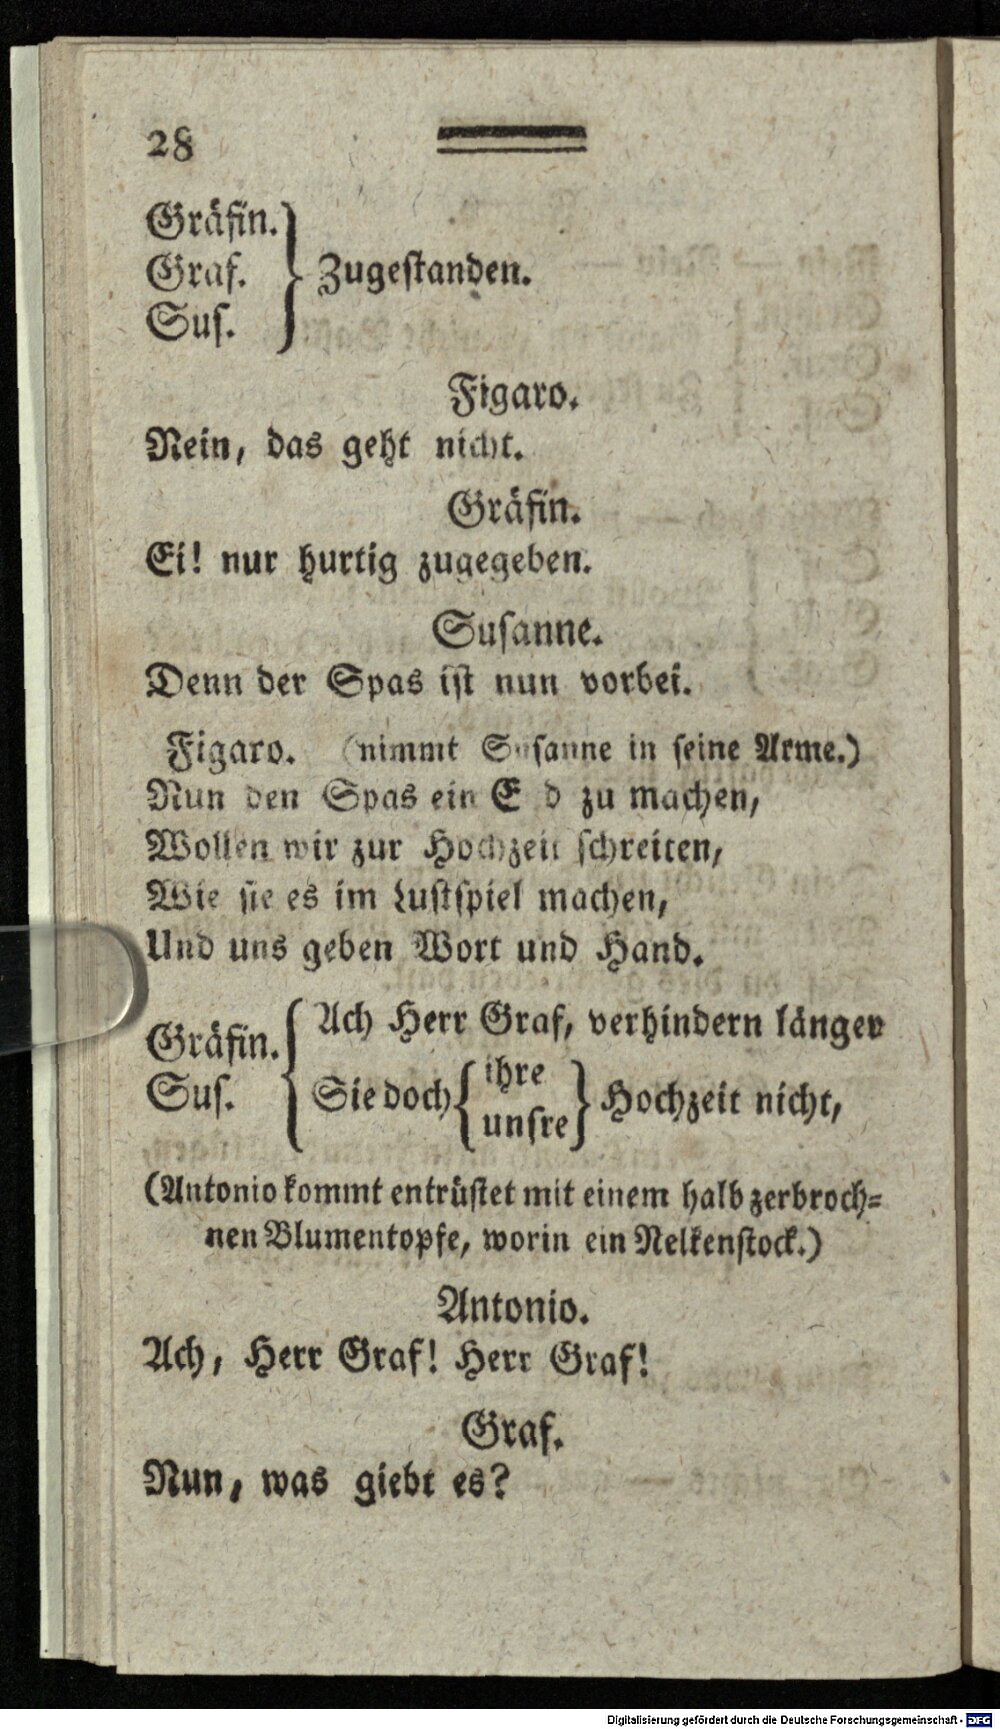 28
Gräfin.
Graf.
Sus.
Zugestanden.
Figaro.
Nein, das geht nicht.
Gräfin.
Ei! nur hurtig zugegeben.
Susanne.
Denn der Spas ist nun vorbei.
Figaro. (nimmt Susanne in seine Arme.)
Nun den Spas ein E d zu machen,
Wollen wir zur Hochzeit schreiten,
Wie sie es im Lustspiel machen,
Und uns geben Wort und Hand.
Gräfin.
Sus.
Ach Herr Graf, verhindern länger
Sie doch
ihre
unsre
Hochzeit nicht,
(Antonio kommt entrüstet mit einem halb zerbroch-
nen Blumentopfe, worin ein Nelkenstock.)
Antonio.
Ach, Herr Graf! Herr Graf!
Graf.
Nun, was giebt es?
Digitalisierung gefördert durch die Deutsche Forschungsgemeinschaft - DFG